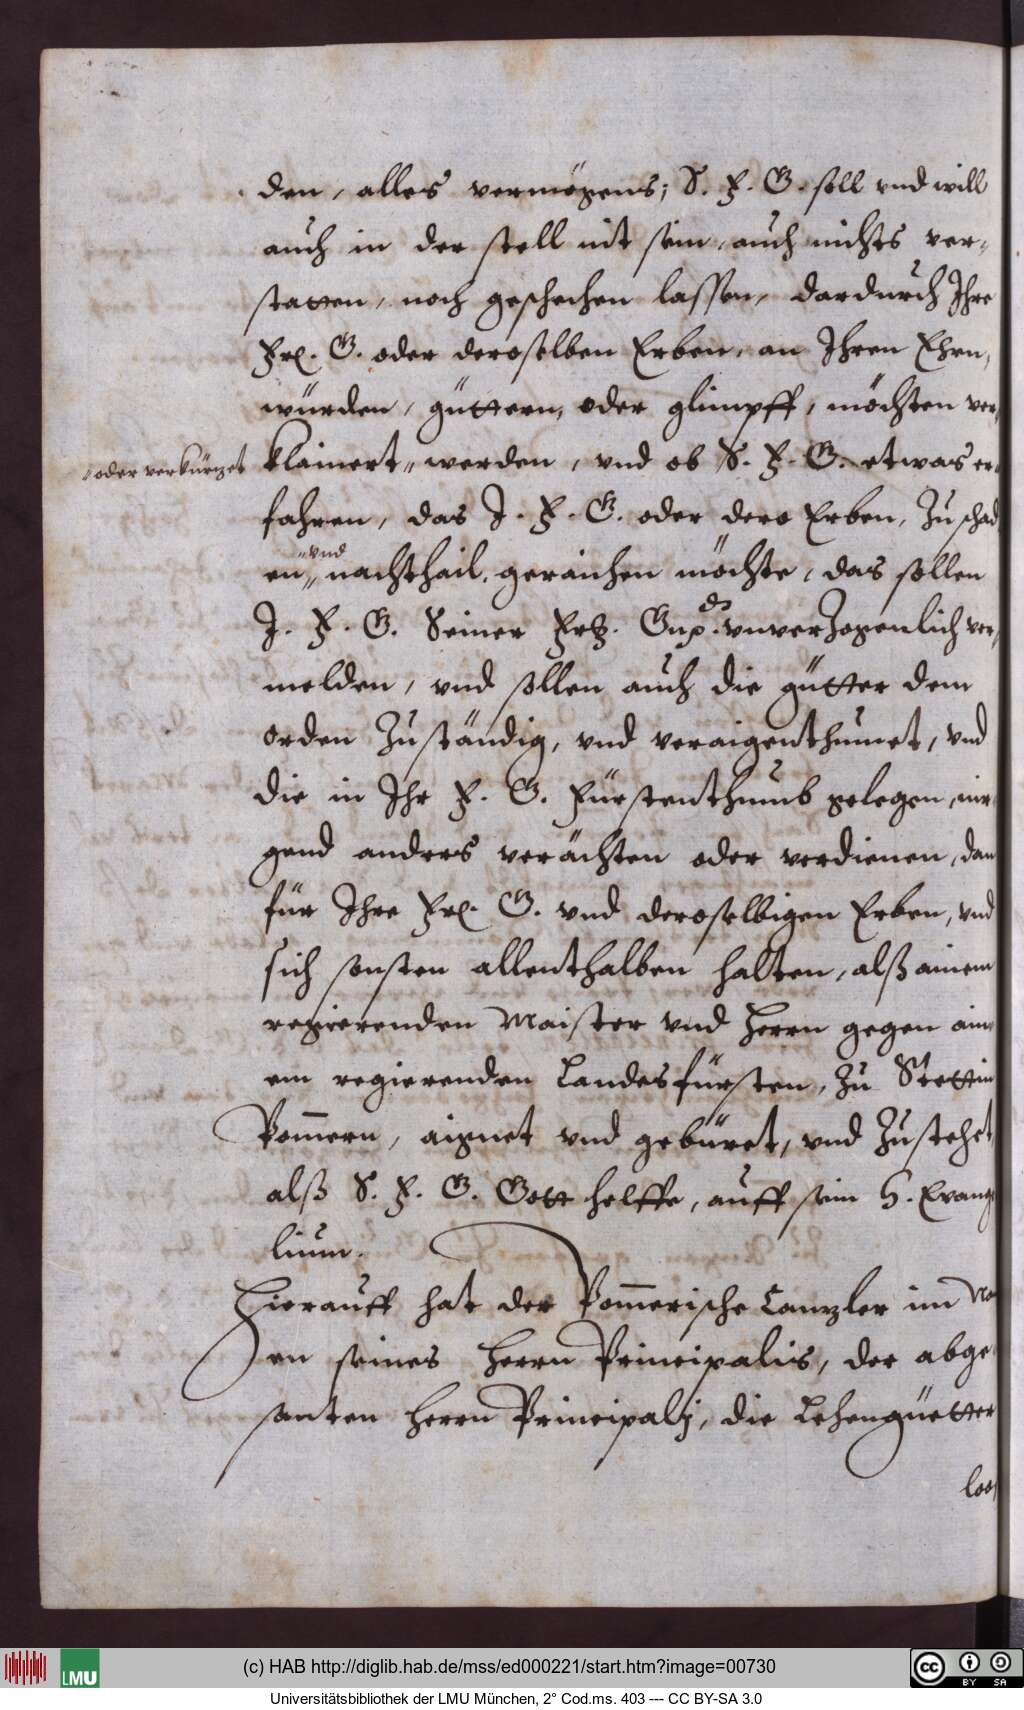 den, alles vermögens; S. F. G. soll vnd will
auch in der stell nit sein, auch nichts ver-
statten, noch geschechen lassen, dardurch Ihre
Frl. G. oder deroselben Erben, an Ihren Ehrn,
würden, güttern, oder glimpff, möchten ver-
„oder verkürzet
klainert„ werden, vnd ob S. F. G. etwas er-
fahren, das J. F. G. oder dero Erben, Zu schad
„vnd
en„ nachthail, geraichen möchte, das sollen
J. F. G. Seiner Frtg. Gnd. vnverZogenlich ver-
melden, vnd sollen auch die gütter dem
orden Zuständig, vnd veraigenthumet, vnd
die in Ihr F. G. Fürstenthumb gelegen, nir
gend anders verächten oder verdienen, dan
für Ihre Frl. G. vnd deroselbigen Erben, vnd
sich sonsten allenthalben halten, alß ainem
regierenden Maister vnd Herrn gegen ain
em regierenden Landesfürsten, Zu Stettin
Pom̅ern, aignet vnd gebüret, vnd Zustehet
alß S. F. G. Gott helffe, auff sein H. Evange
lium.
Hierauff hat der Pom̅erische Canzler im Na
en seines Herrn Principalis, der abge
santen Herrn Principalj, die Lehengüetter
(c) HAB http://diglib.hab.de/mss/ed000221/start.htm?image=00730
LMU
CC BY SA
Universitätsbibliothek der LMU München, 2° Cod.ms. 403 --- CC BY-SA 3.0